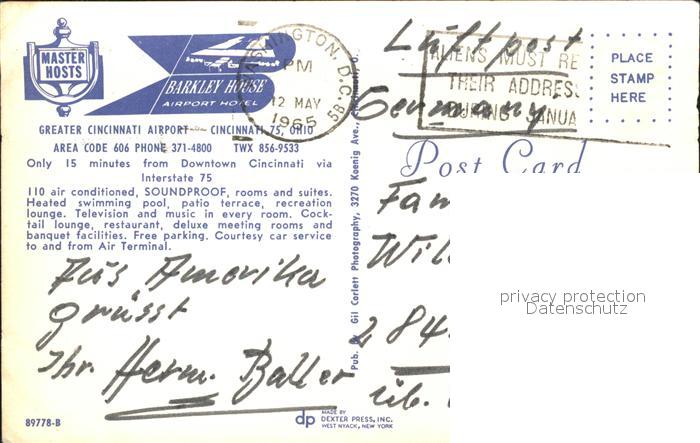 MASTER
HOSTS
BARKLEY HOUSE
AIRPORT HOTEL
GREATER CINCINNATI AIRPORT CINCINNATI 75, OHIO
AREA CODE 606 PHONE 371-4800 TWX 856-9533
Only 15 minutes from Downtown Cincinnati via
Interstate 75
110 air conditioned, SOUNDPROOF, rooms and suites.
Heated swimming pool, patio terrace, recreation
lounge. Television and music in every room. Cock-
tail lounge, restaurant, deluxe meeting rooms and
banquet facilities. Free parking. Courtesy car service
to and from Air Terminal.
Aus Amerika
grüsst
Ihr Herm. Baller
89778-B
dp MADE BY
DEXTER PRESS, INC.
WEST NYACK, NEW YORK
Pub. by Gil Corlett Photography, 3270 Koenig Ave., Cincinnati, O.
WASHINGTON, D.C.
PM
12 MAY
1965
5B
ALIENS MUST RE
THEIR ADDRES
DURING JANUA
PLACE
STAMP
HERE
Luftpost
Germany
Post Card
Fam
Wil
284
üb.
privacy protection
Datenschutz